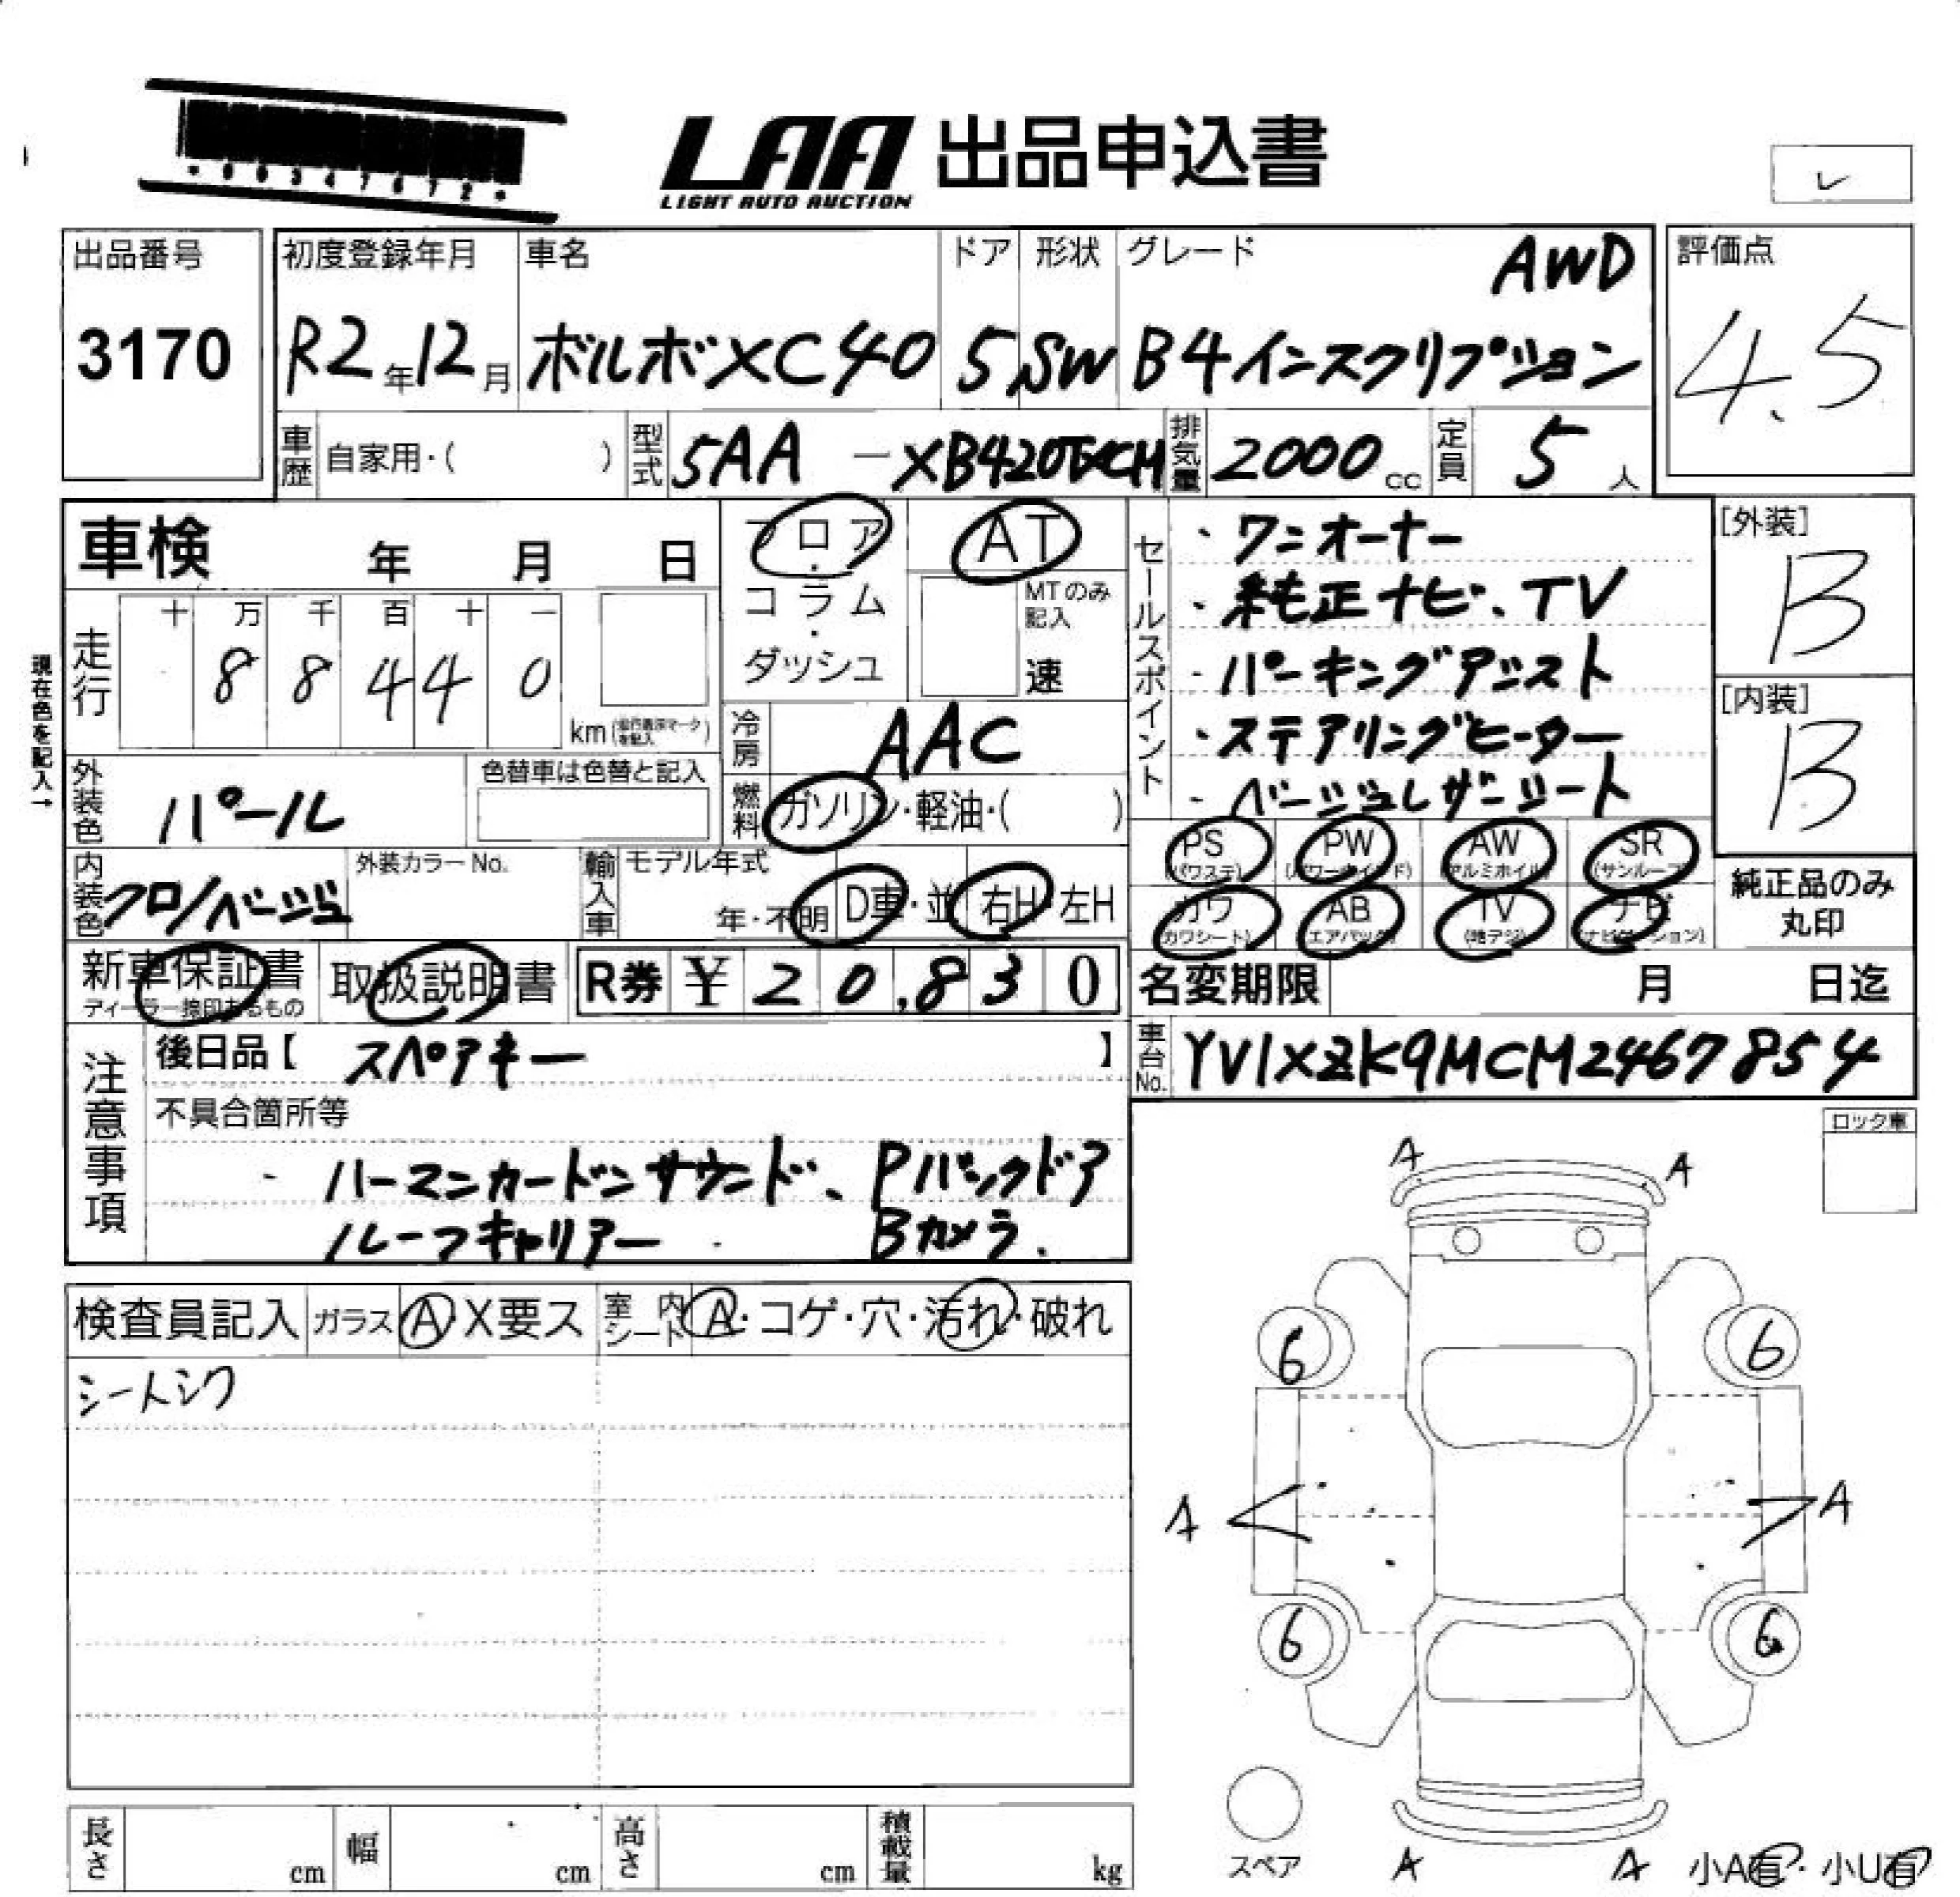 *00347672*
LAA 出品申込書
LIGHT AUTO AUCTION
出品番号
3170
初度登録年月
R2年12月
車名
ボルボXC40
ドア
5
形状
SW
グレード
AWD
B4インスクリプション
評価点
4.5
車歴 自家用・( )
型式 5AA - XB420TXCM
排気量 2000cc
定員 5人
車検 年 月 日
現在色を記入→
走行
十 万 千 百 十 一
8 8 4 4 0
km
フロア・コラム・ダッシュ
AT
MTのみ記入
速
冷房 AAC
燃料 ガソリン・軽油・( )
外装色 パール
色替車は色替と記入
内装色 クロ/ベージュ
外装カラーNo.
輸入車 モデル年式
年・不明
D車・並
右H・左H
セールスポイント
・ワンオーナー
・純正ナビ、TV
・パーキングアシスト
・ステアリングヒーター
・ベージュレザーシート
[外装]
B
[内装]
B
PS (パワステ)
PW (パワーウインド)
AW (アルミホイル)
SR (サンルーフ)
カワ (カワシート)
AB (エアバック)
TV (地デジ)
ナビ (ナビゲーション)
純正品のみ
丸印
新車保証書
ディーラー捺印あるもの
取扱説明書
R券 ¥20,830
名変期限 月 日迄
車台No. YV1XZK9MCM2467854
注意事項
後日品【 スペアキー 】
不具合箇所等
・ハーマンカードンサウンド、Pバックドア
ルーフキャリアー Bカメラ.
ロック車
検査員記入
ガラス A X要ス
室内シート A・コゲ・穴・汚れ・破れ
シートシワ
A A
6 6
A A
6 6
スペア
A A
小A有・小U有
長さ cm
幅 cm
高さ cm
積載量 kg